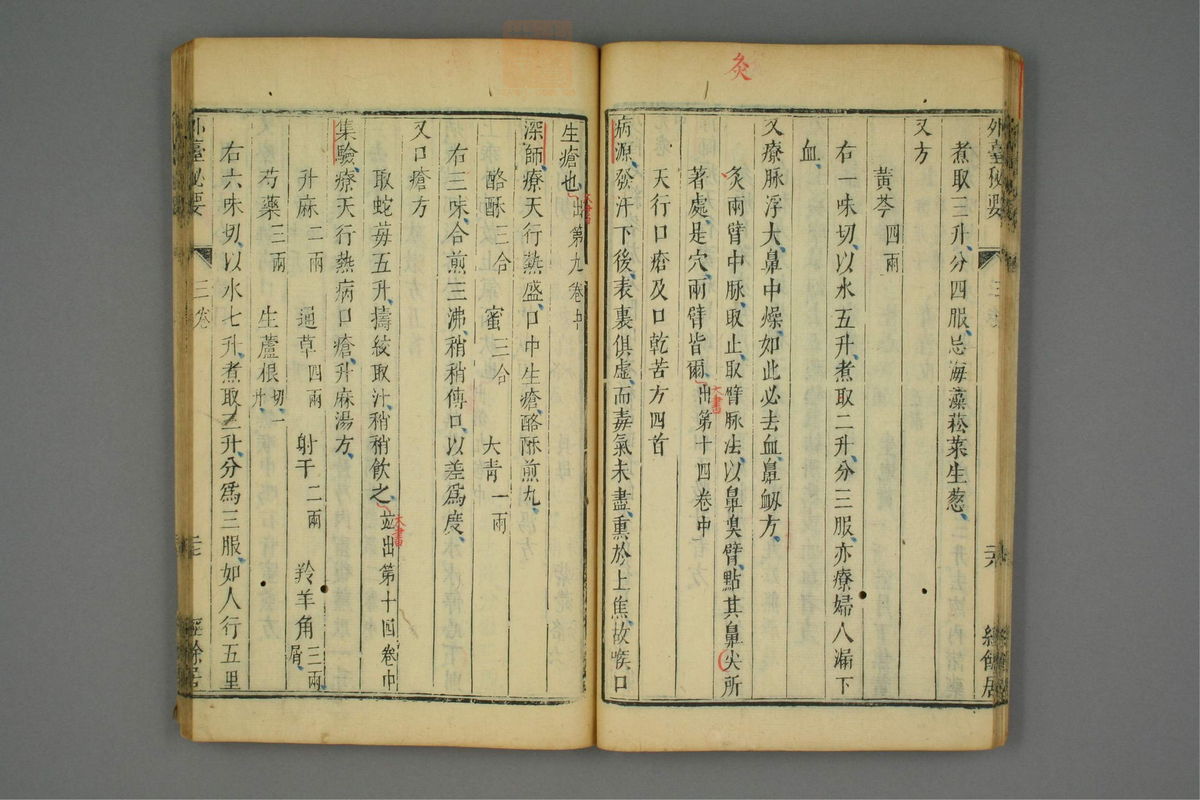 灸
外臺秘要
三卷
二六
經餘居
煮取三升、分四服、忌海藻菘菜生葱、
又方
黃芩四兩
右一味切、以水五升、煮取二升、分三服、亦療婦人漏下
血、
又療脉浮大、鼻中燥、如此必去血、鼻衂方、
灸兩臂中脉、取止、取臂脉法、以鼻臭臂、點其鼻尖所
著處、是穴兩臂皆爾、出第十四卷中
大書
天行口瘡及口乾苦方四首
病源、發汗下後、表裏俱虛、而毒氣未盡、熏於上焦、故喉口
生瘡也、出第九卷中
大書
深師、療天行熱盛、口中生瘡、酪酥煎丸、
酪酥三合 蜜三合 大青一兩
右三味、合煎三沸、稍稍傅口、以差爲度、
又口瘡方
取蛇莓五升、擣絞取汁、稍稍飲之、並出第十四卷中
大書
集驗、療天行熱病口瘡、升麻湯方、
升麻二兩 通草四兩 射干二兩 羚羊角三兩、屑、
芍藥三兩 生蘆根切、一升、
右六味切、以水七升、煮取三升、分爲三服、如人行五里
外臺秘要
三卷
二七
經餘居